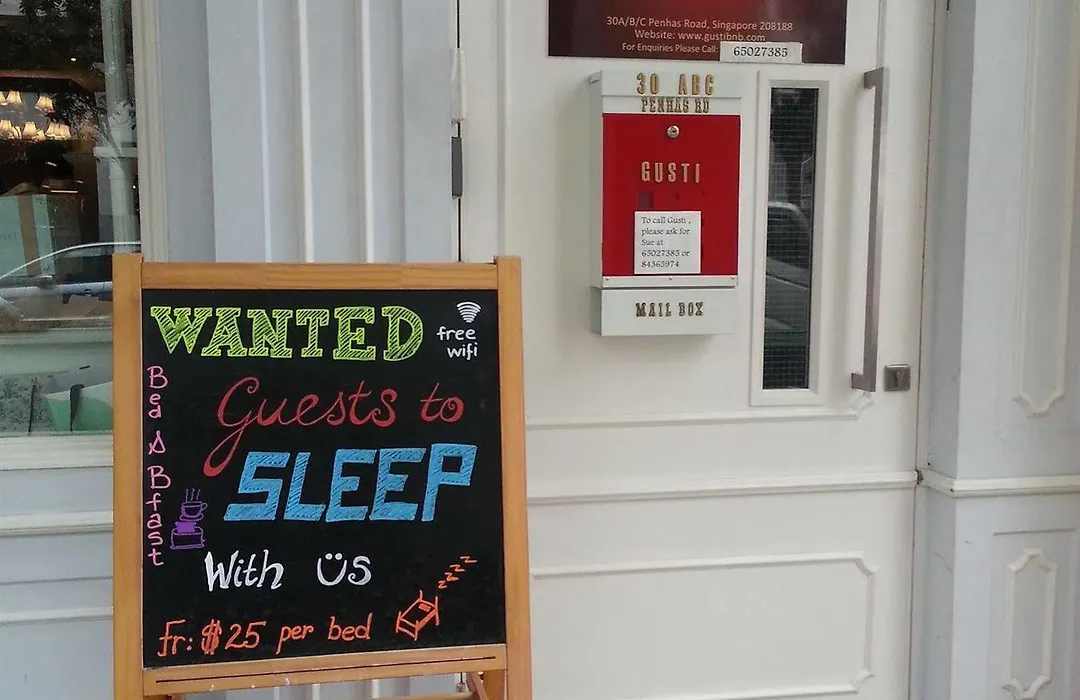 30A/B/C Penhas Road, Singapore 208188
Website: www.gustibnb.com
For Enquiries Please Call: 65027385
30 ABC
PENHAS RD
GUSTI
To call Gusti ,
please ask for
Sue at
65027385 or
84365974
MAIL BOX
WANTED
free
wifi
Guests to
SLEEP
With Üs
Fr: $25 per bed
Bed & Bfast
zzzz